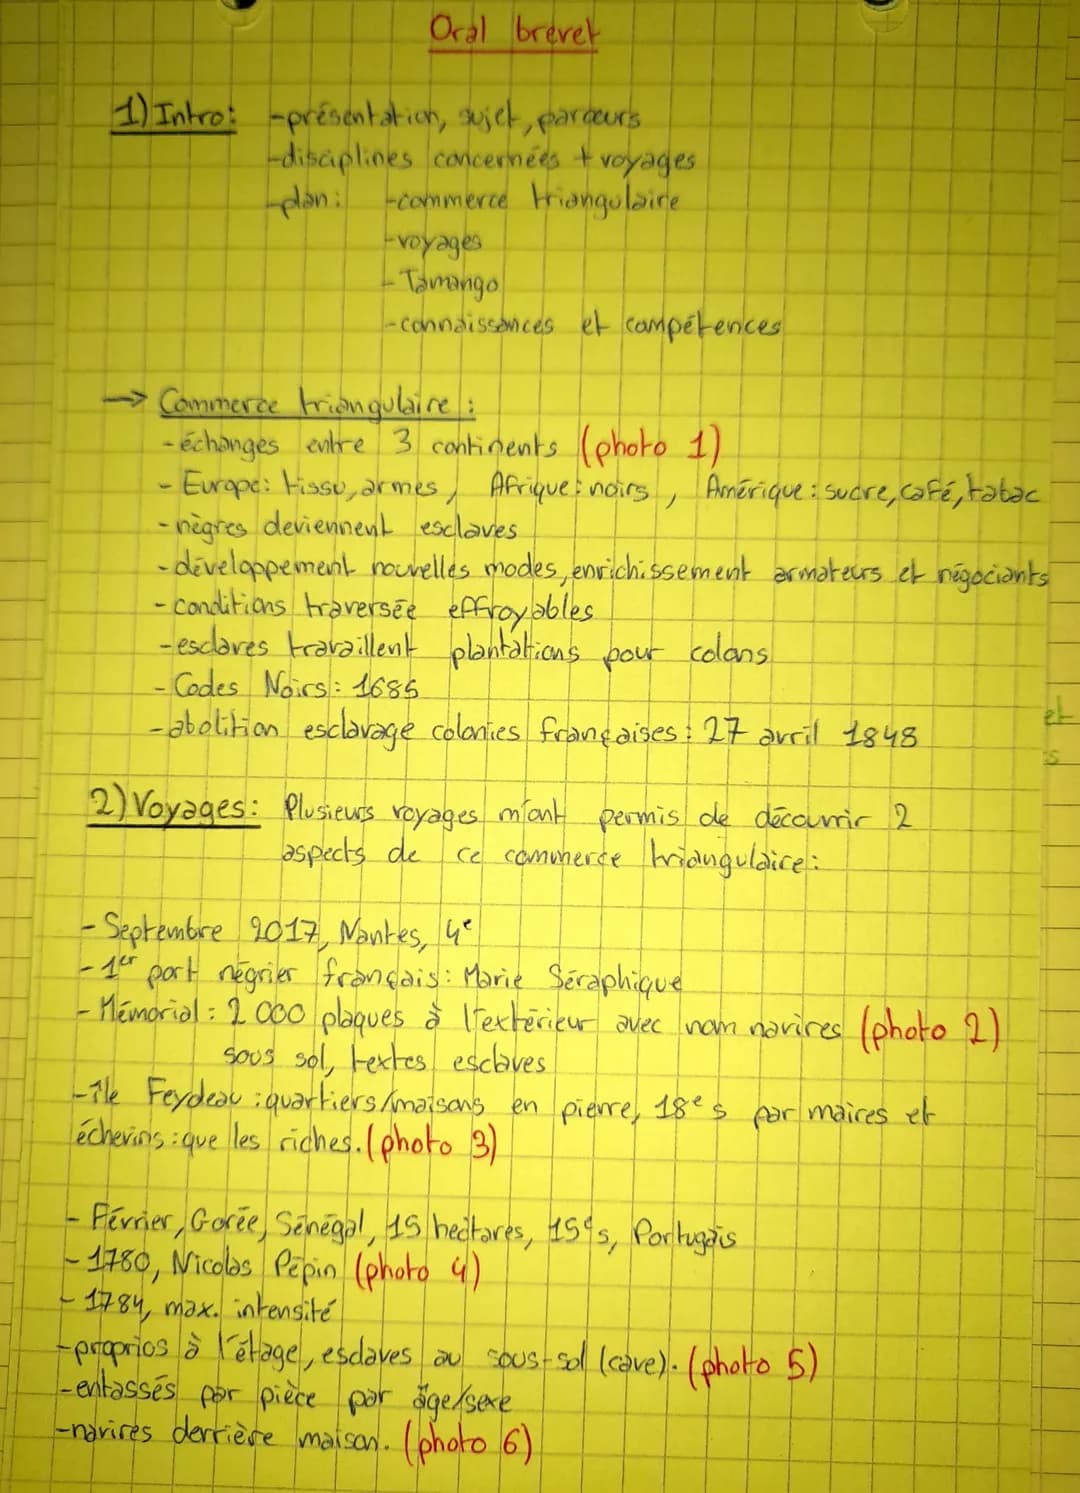 Oral brevet
1) Intro: -présentation, sujet, parcours
-disciplines concernées + voyages
-plan: -commerce triangulaire
-voyages
- Tamango
-connaissances et compétences
→ Commerce triangulaire :
-échanges entre 3 continents (photo 1)
- Europe: tissu, armes, Afrique: noirs, Amérique: sucre, café, tabac
-nègres deviennent esclaves
-développement nouvelles modes, enrichissement armateurs et négociants
-conditions traversée effroyables
-esclaves travaillent plantations pour colons
- Codes Noirs: 1685
-abolition esclavage colonies françaises: 27 avril 1848
et
s
2) Voyages: Plusieurs voyages m'ont permis de découvrir 2
aspects de ce commerce triangulaire:
- Septembre 2017, Nantes, 4e
-1er port négrier français: Marie Séraphique
- Mémorial: 2 000 plaques à l'extérieur avec nom navires (photo 2)
sous sol, textes esclaves
-île Feydeau : quartiers/maisons en pierre, 18e s par maires et
échevins : que les riches. (photo 3)
- Février, Gorée, Sénégal, 15 hectares, 15e s, Portugais
- 1780, Nicolas Pépin (photo 4)
- 1784, max. intensité
-proprios à l'étage, esclaves au sous-sol (cave). (photo 5)
-entassés par pièce par âge/sexe
-navires derrière maison. (photo 6)